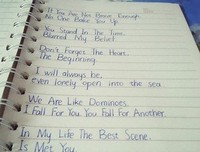 If You Are Not Brave Enough.
No One Back You Up
You Spend In The Time.
My Belief.
Don't Forget The Heart.
The Beginning.
I will always be.
even lonely open into the sea.
We Are Like Dominoes.
I Fall For You You Fall For Another.
In My Life The Best Scene.
Is Met You.